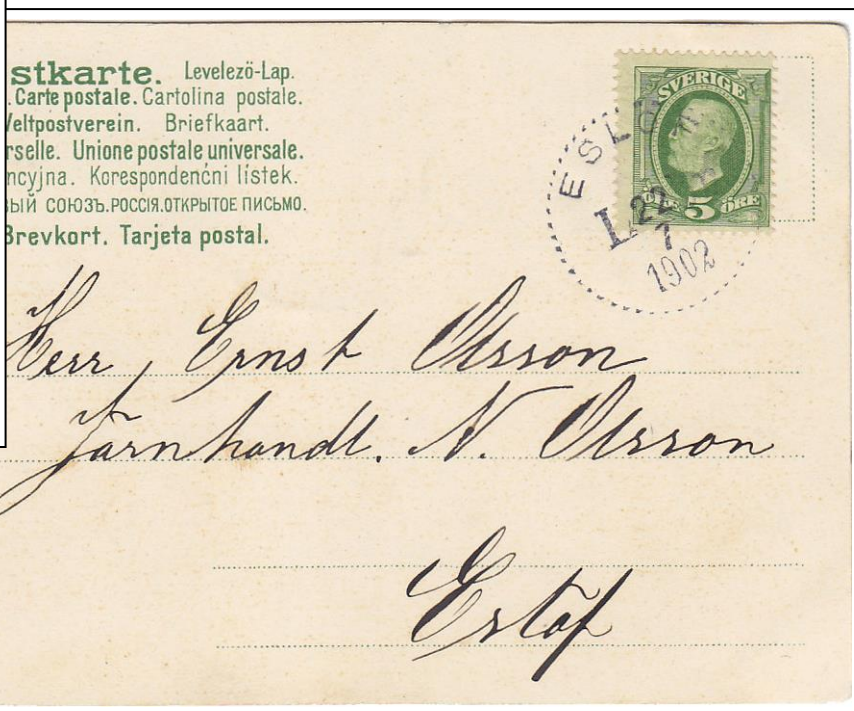 stkarte. Levelező-Lap.
. Carte postale. Cartolina postale.
Weltpostverein. Briefkaart.
rselle. Unione postale universale.
ncyjna. Korespondenčni listek.
ВЫЙ СОЮЗЪ. РОССІЯ. ОТКРЫТОЕ ПИСЬМО.
Brevkort. Tarjeta postal.
SVERIGE
5 ÖRE
ESLÖ
L
22
7
1902
Herr Ernst Olsson
Järnhandl. N. Olsson